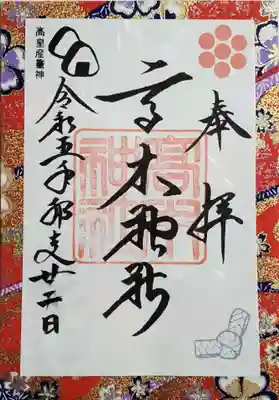 奉拝
高木神社
高木神社
令和五年弥生廿日
高皇産靈神